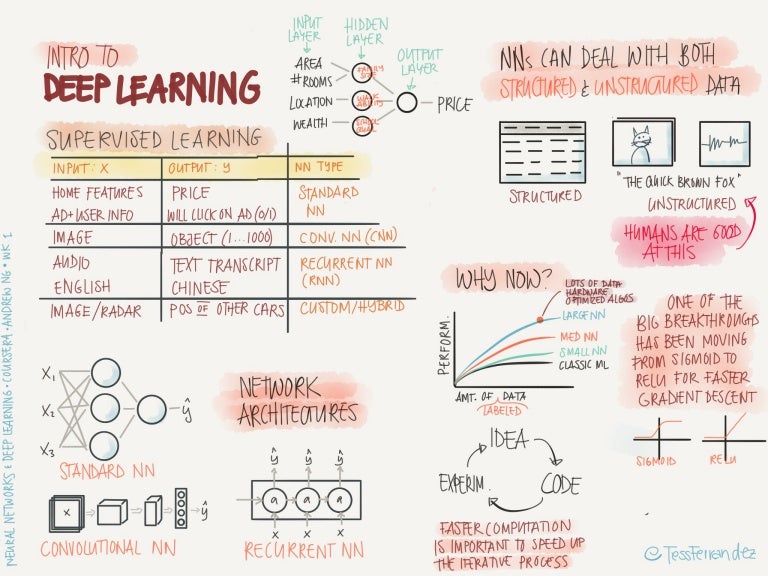 INTRO TO
DEEP LEARNING
INPUT LAYER
HIDDEN LAYER
OUTPUT LAYER
AREA
# ROOMS
LOCATION
WEALTH
FAMILY SIZE
PRICE
SUPERVISED LEARNING
INPUT: X OUTPUT: Y NN TYPE
HOME FEATURES PRICE STANDARD
AD+USER INFO WILL CLICK ON AD (0/1) NN
IMAGE OBJECT (1...1000) CONV. NN (CNN)
AUDIO TEXT TRANSCRIPT RECURRENT NN
ENGLISH CHINESE (RNN)
IMAGE/RADAR POS OF OTHER CARS CUSTOM/HYBRID
NNs CAN DEAL WITH BOTH
STRUCTURED & UNSTRUCTURED DATA
STRUCTURED
"THE QUICK BROWN FOX"
UNSTRUCTURED
HUMANS ARE GOOD
AT THIS
WHY NOW?
LOTS OF DATA
HARDWARE
OPTIMIZED ALGOS
LARGE NN
MED NN
SMALL NN
CLASSIC ML
PERFORM.
AMT. OF DATA
LABELED
ONE OF THE
BIG BREAKTHROUGHS
HAS BEEN MOVING
FROM SIGMOID TO
RELU FOR FASTER
GRADIENT DESCENT
SIGMOID
RELU
X1
X2
X3
ŷ
STANDARD NN
NETWORK
ARCHITECTURES
X
ŷ
CONVOLUTIONAL NN
ŷ ŷ ŷ
a a a
X X X
RECURRENT NN
IDEA
CODE
EXPERIM.
FASTER COMPUTATION
IS IMPORTANT TO SPEED UP
THE ITERATIVE PROCESS
NEURAL NETWORKS & DEEP LEARNING · COURSERA · ANDREW NG · WK 1
@TessFerrandez